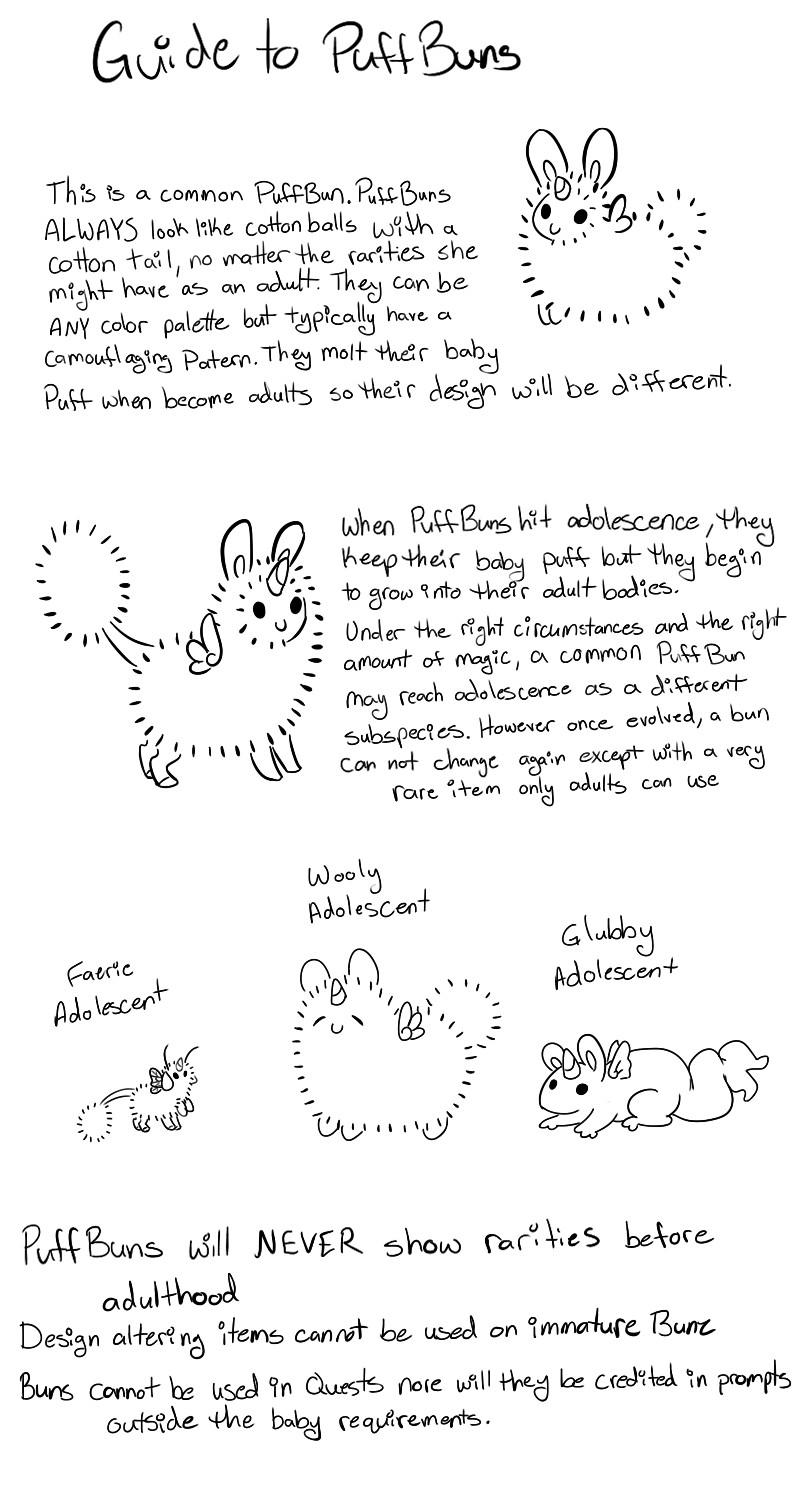 Guide to PuffBuns
This is a common PuffBun. PuffBuns
ALWAYS look like cotton balls with a
cotton tail, no matter the rarities she
might have as an adult. They can be
ANY color palette but typically have a
camouflaging Patern. They molt their baby
Puff when become adults so their design will be different.
When PuffBuns hit adolescence, they
keep their baby puff but they begin
to grow into their adult bodies.
Under the right circumstances and the right
amount of magic, a common PuffBun
may reach adolescence as a different
subspecies. However once evolved, a bun
can not change again except with a very
rare item only adults can use
Wooly
Adolescent
Glubby
Adolescent
Faerie
Adolescent
PuffBuns will NEVER show rarities before
adulthood
Design altering items cannot be used on immature Bunz
Buns cannot be used in Quests nore will they be credited in prompts
outside the baby requirements.